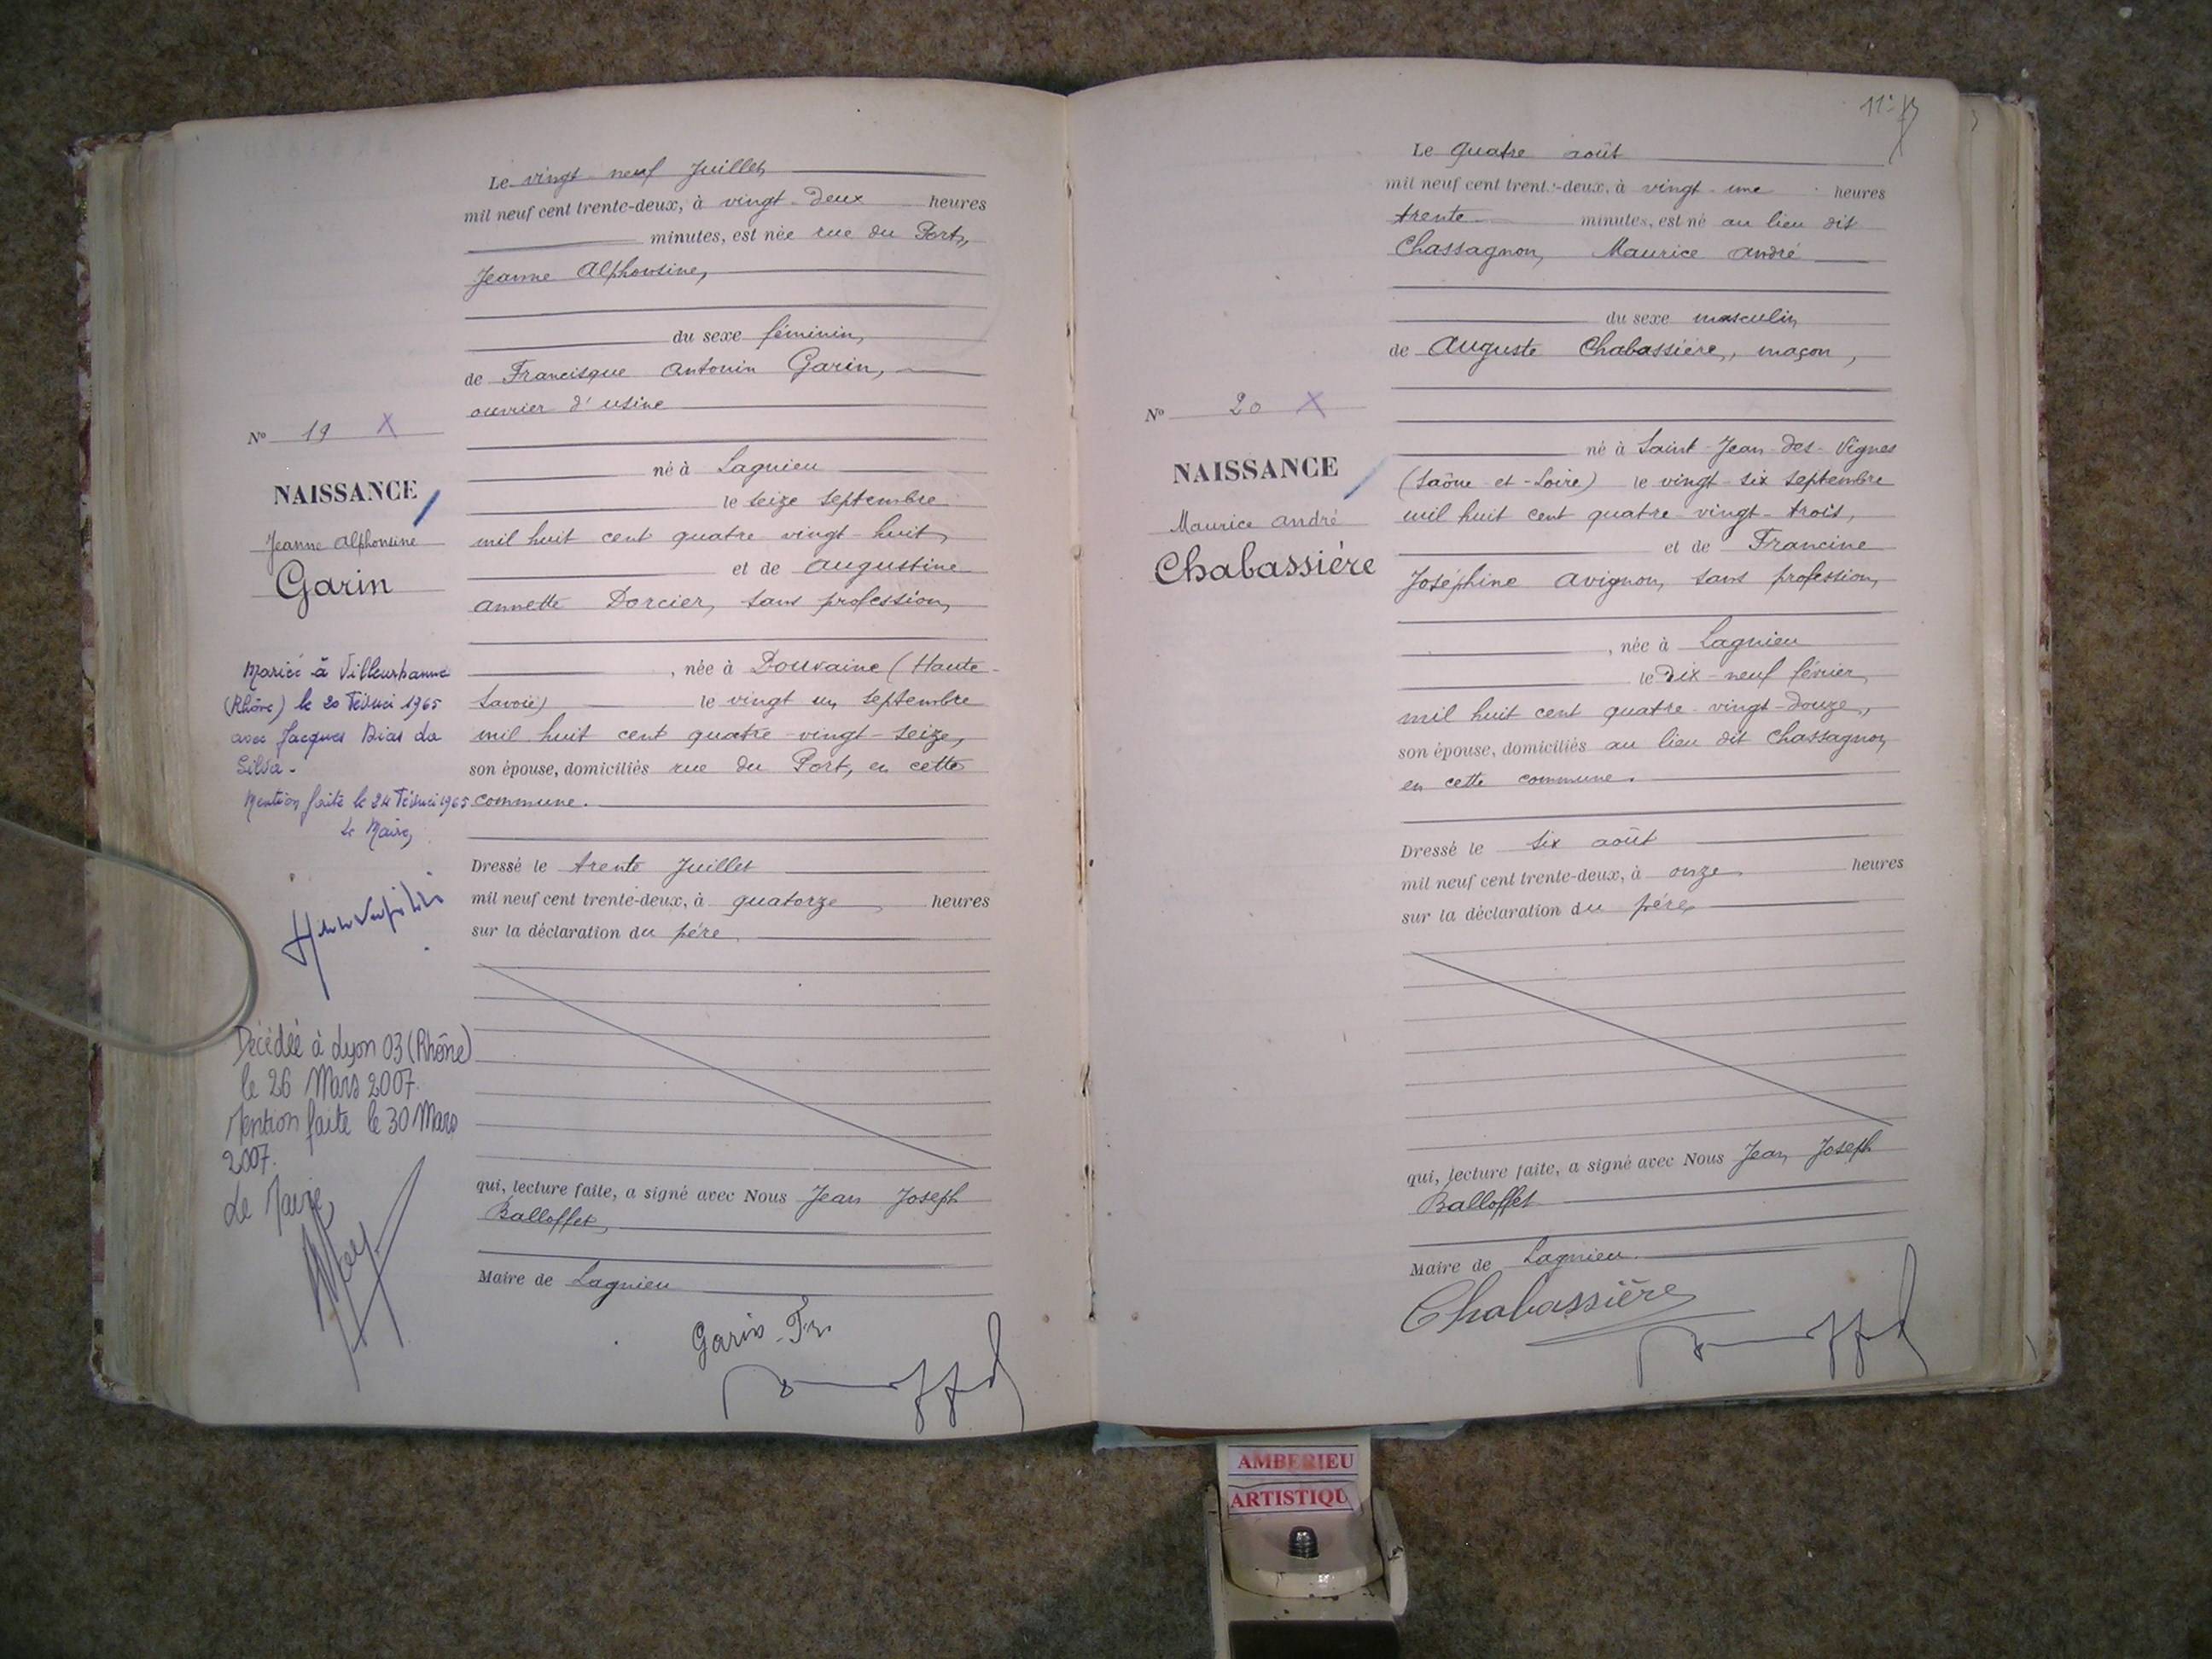 Le vingt-neuf Juillet
mil neuf cent trente-deux, à vingt-deux heures
minutes, est née rue du Port,
Jeanne Alphonsine,
du sexe féminin,
de Francisque Antonin Garin,
ouvrier d'usine
né à Lagnieu
le seize septembre
mil huit cent quatre vingt-huit,
et de Augustine
Annette Dorcier, sans profession,
, née à Douvaine (Haute-
Savoie) le vingt un septembre
mil huit cent quatre-vingt-seize,
son épouse, domiciliés rue du Port, en cette
commune.
Dressé le trente Juillet
mil neuf cent trente-deux, à quatorze heures
sur la déclaration du père
qui, lecture faite, a signé avec Nous Jean Joseph
Balloffet,
Maire de Lagnieu
Garin Fr
Nº 19 X
NAISSANCE
Jeanne Alphonsine
Garin
Mariée à Villeurbanne
(Rhône) le 20 Février 1965
avec Jacques Dias da
Silva.
Mention faite le 24 Février 1965
Le Maire,
Décédée à Lyon 03 (Rhône)
le 26 Mars 2007.
Mention faite le 30 Mars
2007.
Le Maire,
Le quatre août
mil neuf cent trente-deux, à vingt-une heures
trente minutes, est né au lieu dit
Chassagnon, Maurice André
du sexe masculin
de Auguste Chabassière, maçon,
né à Saint-Jean-des-Vignes
(Saône-et-Loire) le vingt-six septembre
mil huit cent quatre-vingt-trois,
et de Francine
Joséphine Avignon, sans profession,
, née à Lagnieu
le dix-neuf février
mil huit cent quatre-vingt-douze,
son épouse, domiciliés au lieu dit Chassagnon
en cette commune.
Dressé le six août
mil neuf cent trente-deux, à onze heures
sur la déclaration du père
qui, lecture faite, a signé avec Nous Jean Joseph
Balloffet
Maire de Lagnieu.
Chabassière
Nº 20 X
NAISSANCE
Maurice André
Chabassière
AMBERIEU
ARTISTIQU